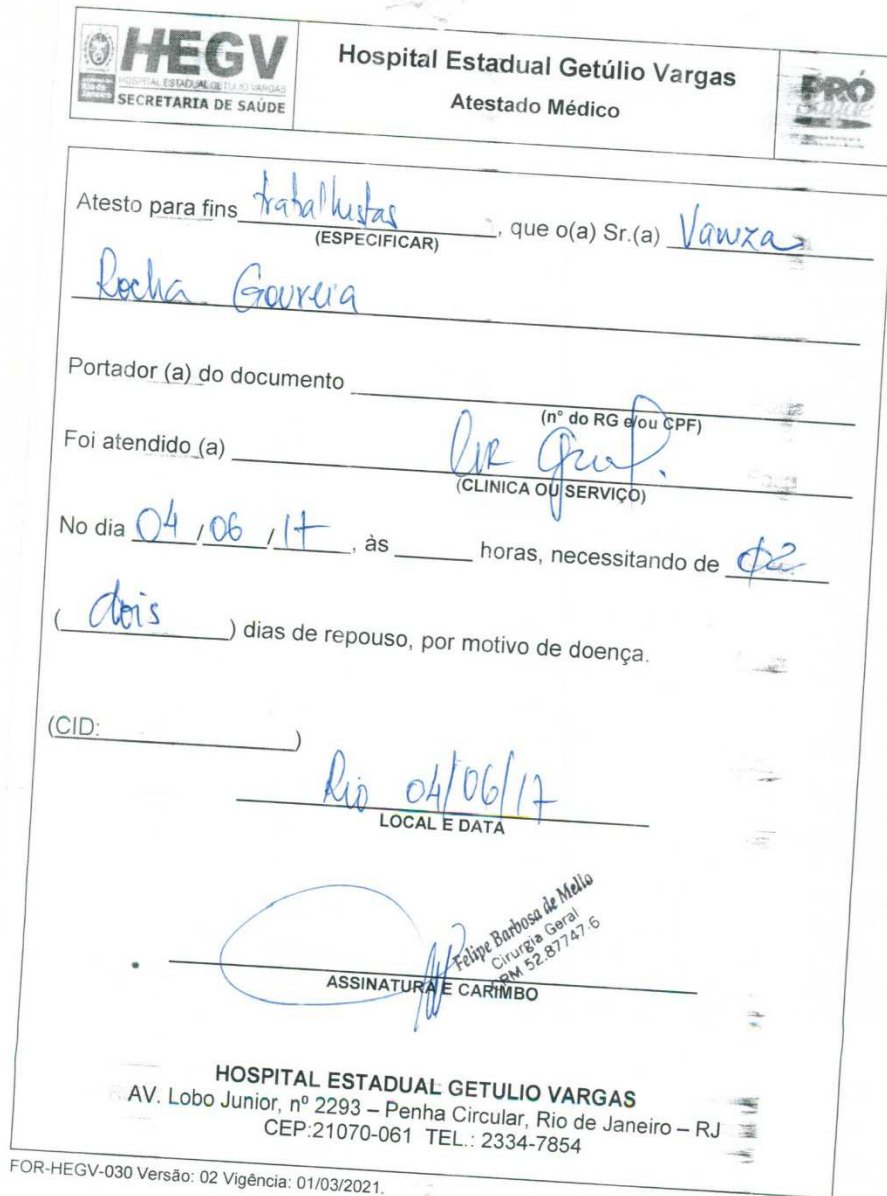 HEGV
HOSPITAL ESTADUAL GETULIO VARGAS
SECRETARIA DE SAÚDE
Hospital Estadual Getúlio Vargas
Atestado Médico
PRÓ
Atesto para fins trabalhistas, que o(a) Sr.(a) Vawza
(ESPECIFICAR)
Rocha Gouveia
Portador (a) do documento
(n° do RG e/ou CPF)
Foi atendido (a) Cir Geral.
(CLINICA OU SERVIÇO)
No dia 04/06/17, às ______ horas, necessitando de 02
(dois) dias de repouso, por motivo de doença.
(CID: )
Rio 04/06/17
LOCAL E DATA
Felipe Barbosa de Mello
Cirurgia Geral
CRM 52.87747-6
ASSINATURA E CARIMBO
HOSPITAL ESTADUAL GETULIO VARGAS
AV. Lobo Junior, nº 2293 – Penha Circular, Rio de Janeiro – RJ
CEP:21070-061 TEL.: 2334-7854
FOR-HEGV-030 Versão: 02 Vigência: 01/03/2021.